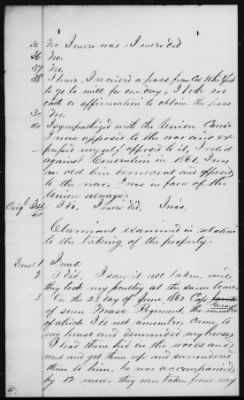 35 No I never was I never did
36 No.
37 No.
38 I have. I received a pass from Col Whitford
to go to mill for one day, I took no
oath or affirmation to obtain the pass
39 No.
40 I sympathized with the Union Cause
I was opposed to the war and ex-
pressed myself opposed to it, I voted
against Convention in 1861. I was
an old line democrat and opposed
to the war. I was in favor of the
Union always.
41 I do. I never did, I was.
Claimant examined in relation
to the taking of the property.
1 I was
2 I did; I saw it all taken, and
they took my poultry at the same time.
3 On the 23 day of June 1863 Capt
of some Texas Regiment, the number
of which I do not remember, came to
my house and demanded my horses
I had them hid in the woods and
went and got them up and surrendered
them to him, he was accompanied
by 12 men. they were taken from my